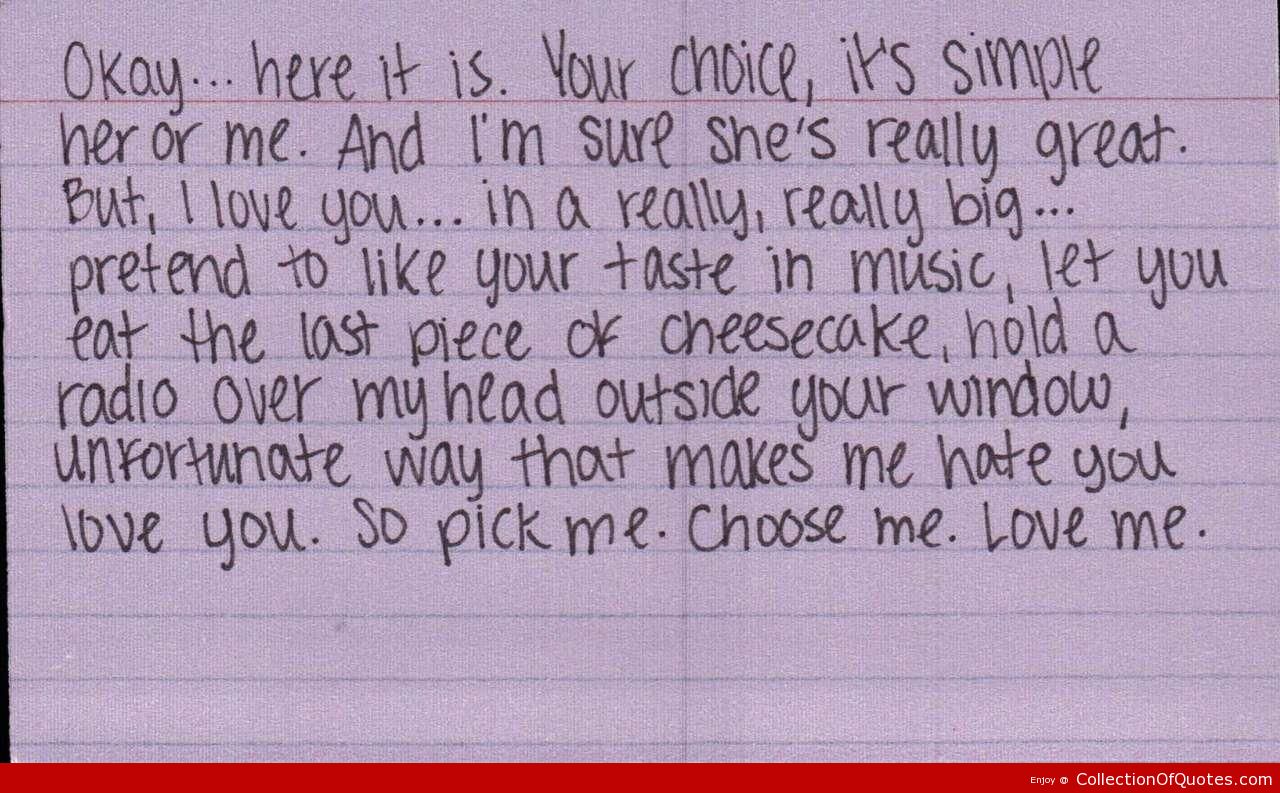 Okay... here it is. Your choice, it's simple
her or me. And I'm sure she's really great.
But, I love you... in a really, really big...
pretend to like your taste in music, let you
eat the last piece of cheesecake, hold a
radio over my head outside your window,
unfortunate way that makes me hate you
love you. So pick me. Choose me. Love me.
Enjoy @ CollectionOfQuotes.com